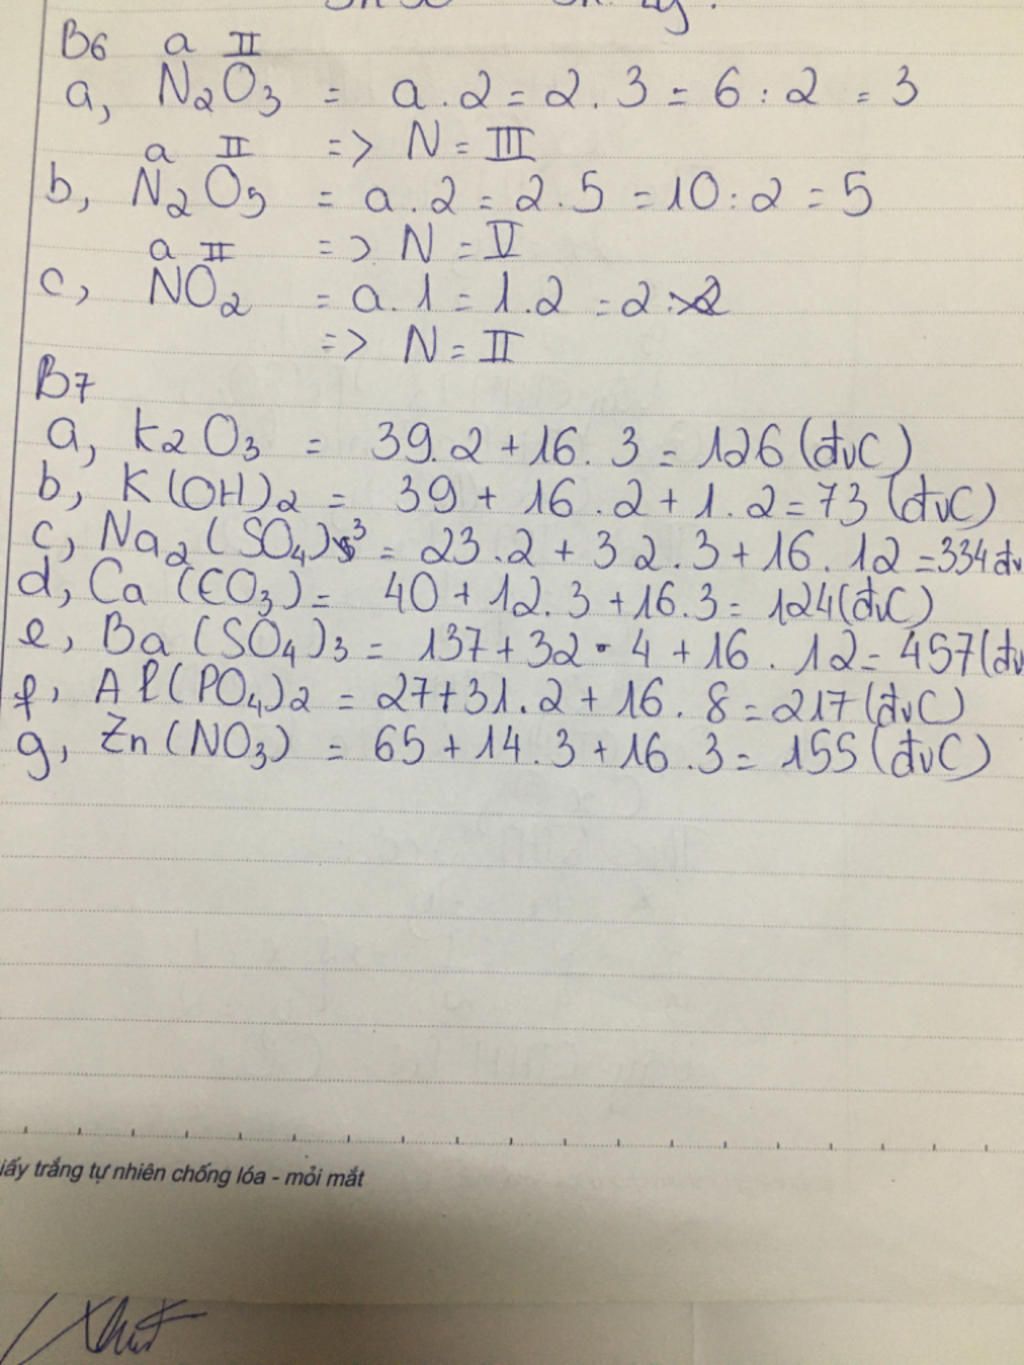 B6 a II
a, N2O3 = a.2 = 2.3 = 6:2 = 3
a II => N = III
b, N2O5 = a.2 = 2.5 = 10:2 = 5
a II => N = V
c, NO2 = a.1 = 1.2 = 2
=> N = II
B7
a, K2O3 = 39.2 + 16.3 = 126 (đvC)
b, K(OH)2 = 39 + 16.2 + 1.2 = 73 (đvC)
c, Na2(SO4)3 = 23.2 + 32.3 + 16.12 = 334 đv
d, Ca (CO3) = 40 + 12.3 + 16.3 = 124 (đvC)
e, Ba (SO4)3 = 137 + 32.4 + 16.12 = 457 (đv
f, Al(PO4)2 = 27 + 31.2 + 16.8 = 217 (đvC)
g, Zn (NO3) = 65 + 14.3 + 16.3 = 155 (đvC)
iấy trắng tự nhiên chống lóa - mỏi mắt